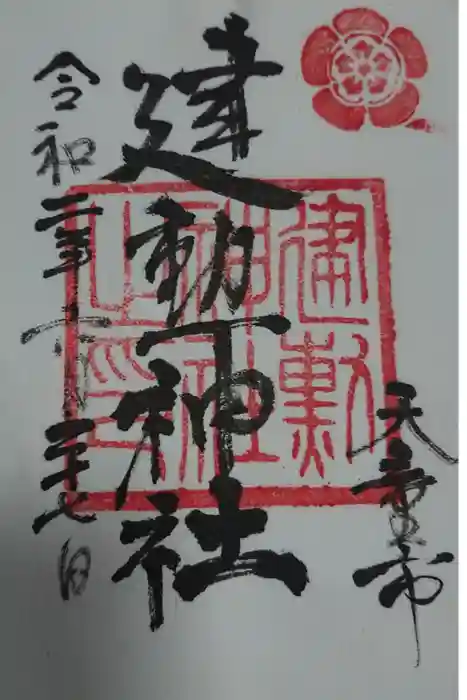 天童市
建勲神社
令和二年十月二十七日
建勲
神社
之印